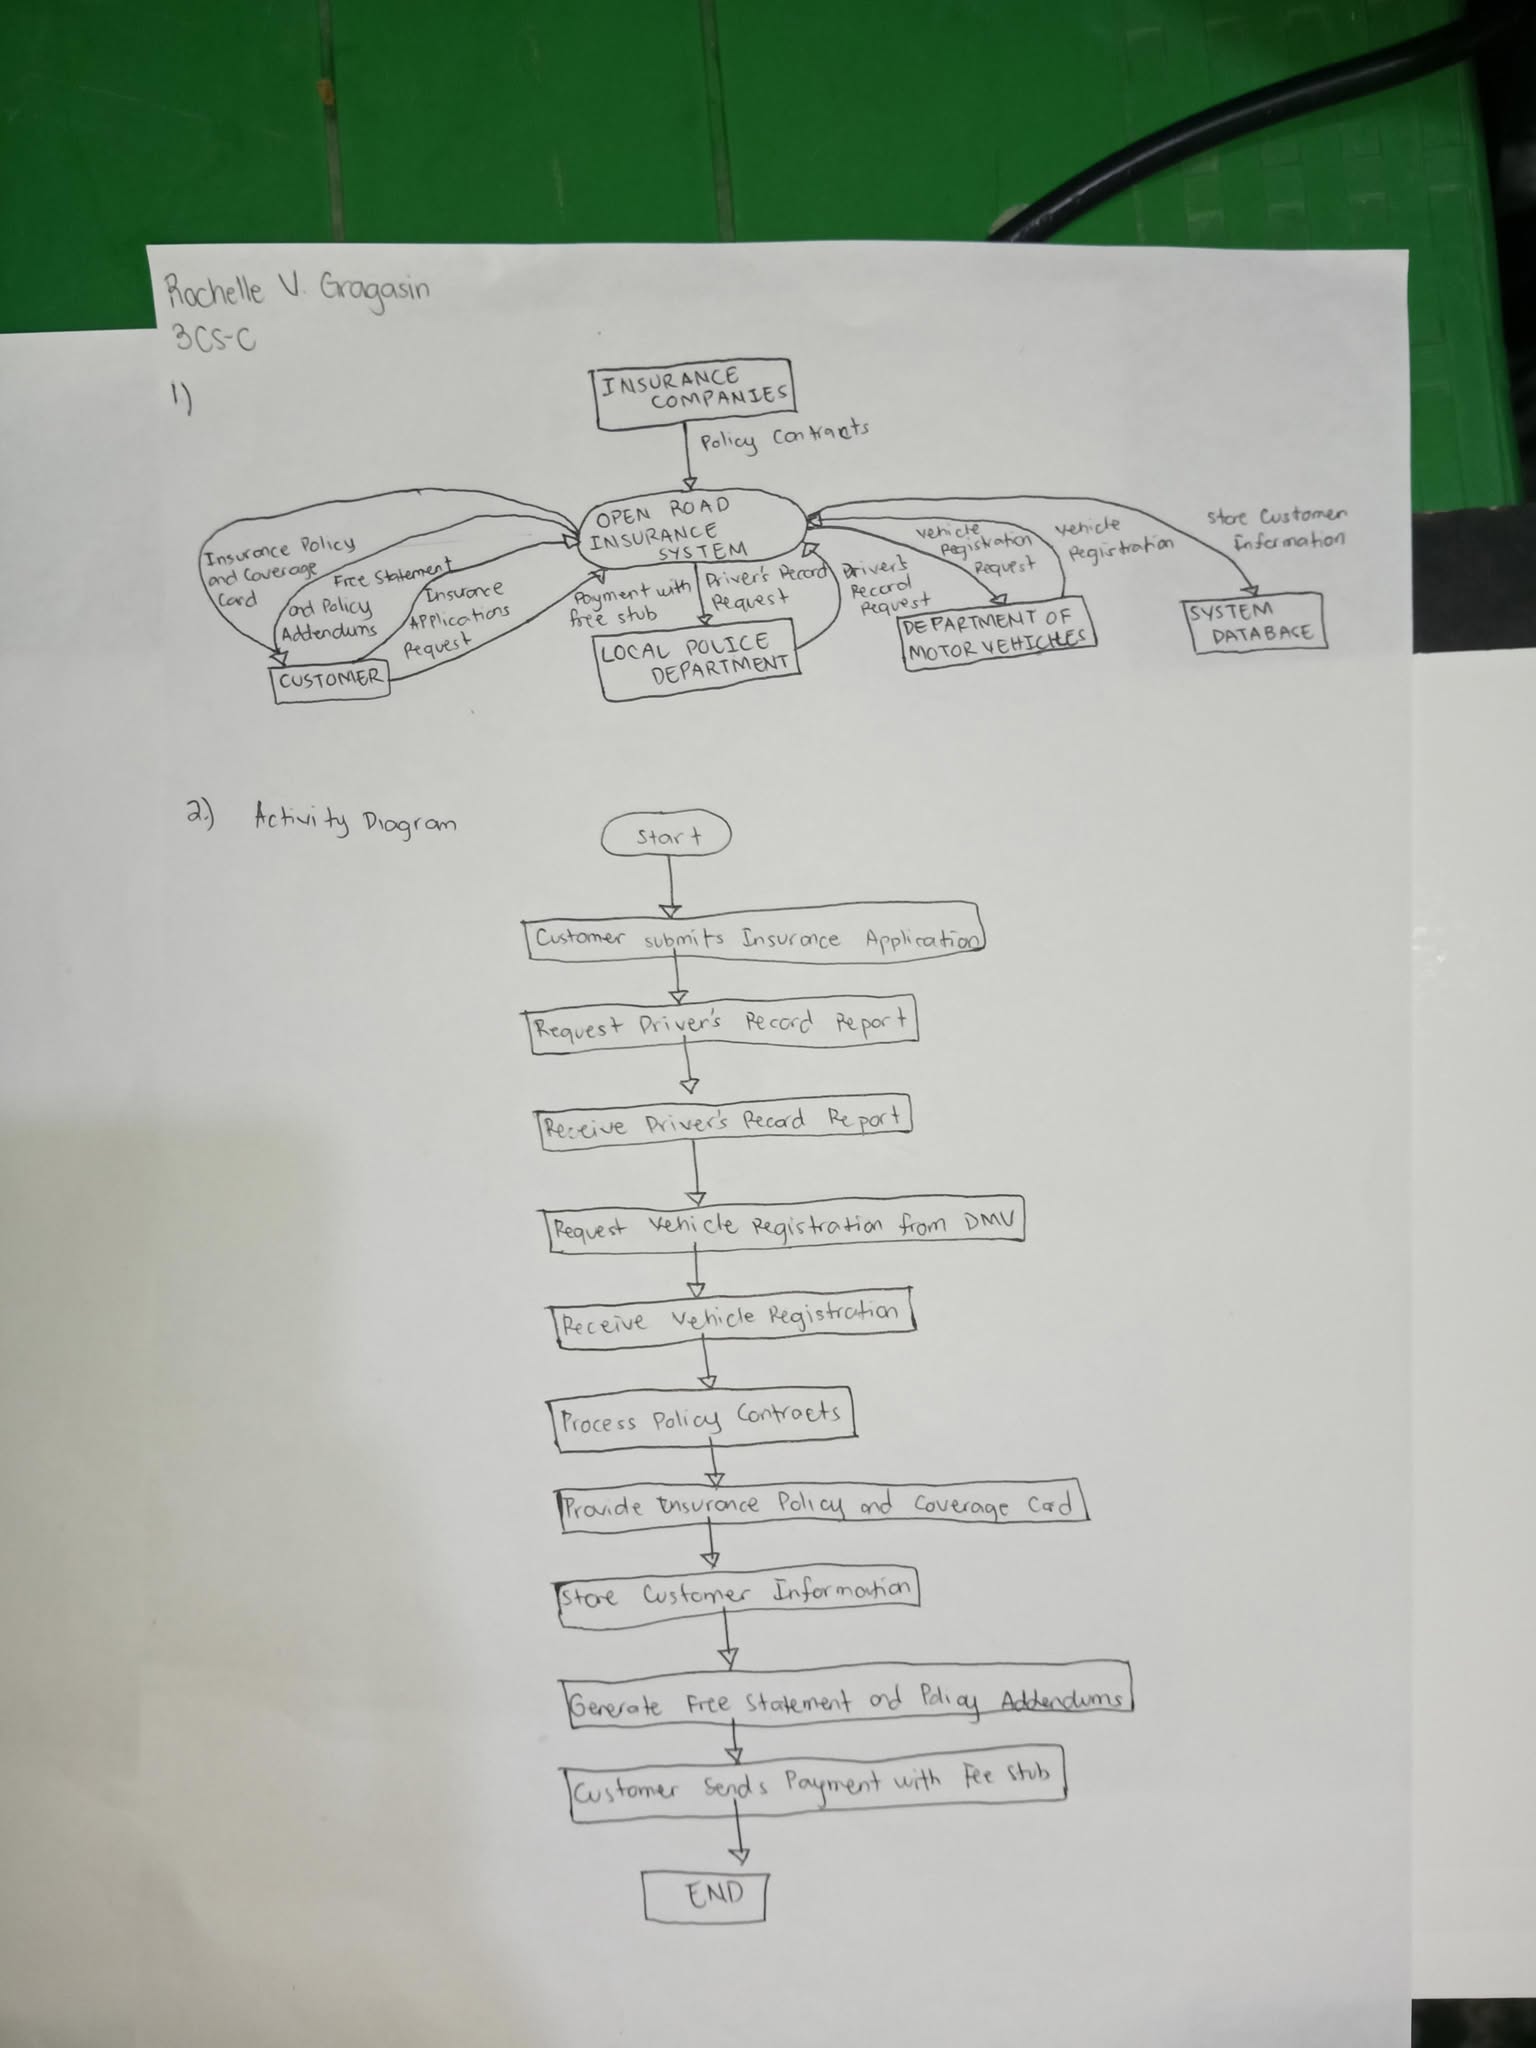 Rochelle V. Gragasin
3CS-C
1)
INSURANCE
COMPANIES
Policy Contracts
OPEN ROAD
INSURANCE
SYSTEM
Insurance Policy
and Coverage
Card
Free Statement
and Policy
Addendums
Insurance
Applications
Request
Payment with
free stub
Driver's Record
Request
Driver's
Record
Request
Vehicle
Registration
Request
Vehicle
Registration
Store Customer
Information
CUSTOMER
LOCAL POLICE
DEPARTMENT
DEPARTMENT OF
MOTOR VEHICLES
SYSTEM
DATABASE
2.) Activity Diagram
Start
Customer submits Insurance Application
Request Driver's Record Report
Receive Driver's Record Report
Request Vehicle Registration from DMV
Receive Vehicle Registration
Process Policy Contracts
Provide Insurance Policy and Coverage Card
Store Customer Information
Generate Free Statement and Policy Addendums
Customer Sends Payment with Fee Stub
END